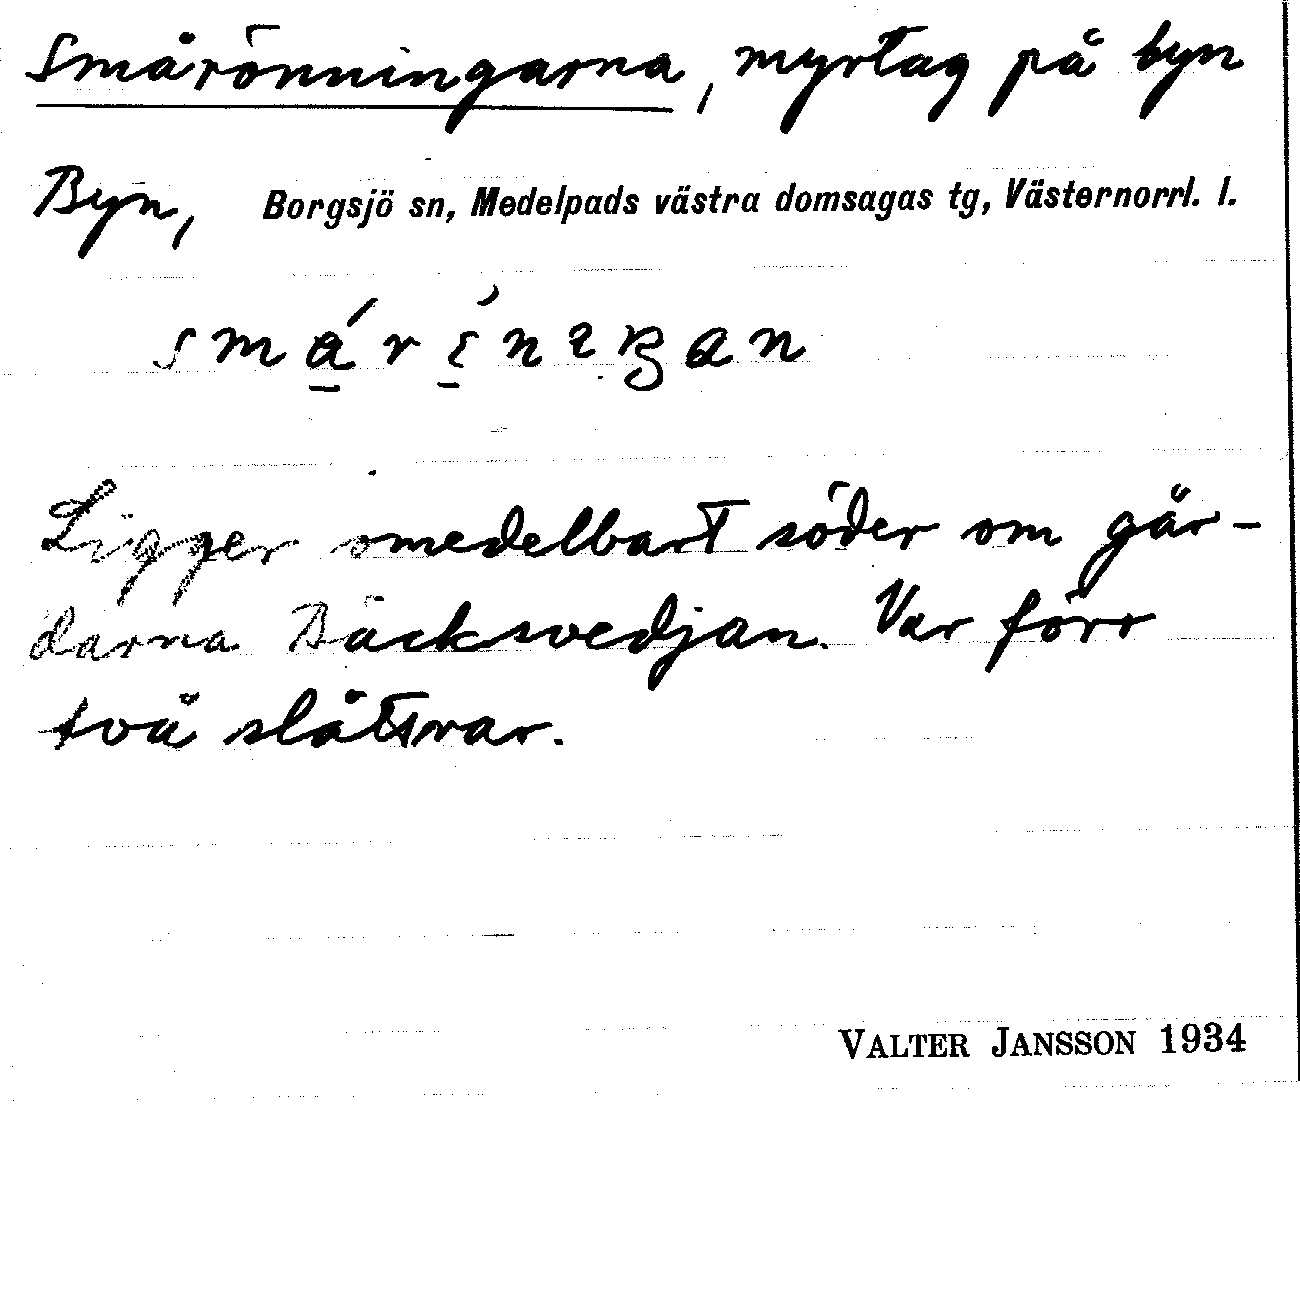 Smårönningarna, myrtag på byn
Byn, Borgsjö sn, Medelpads västra domsagas tg, Västernorrl. l.
Ligger omedelbart söder om går-
darna Bäcksvedjan. Var förr
två slåttrar.
VALTER JANSSON 1934